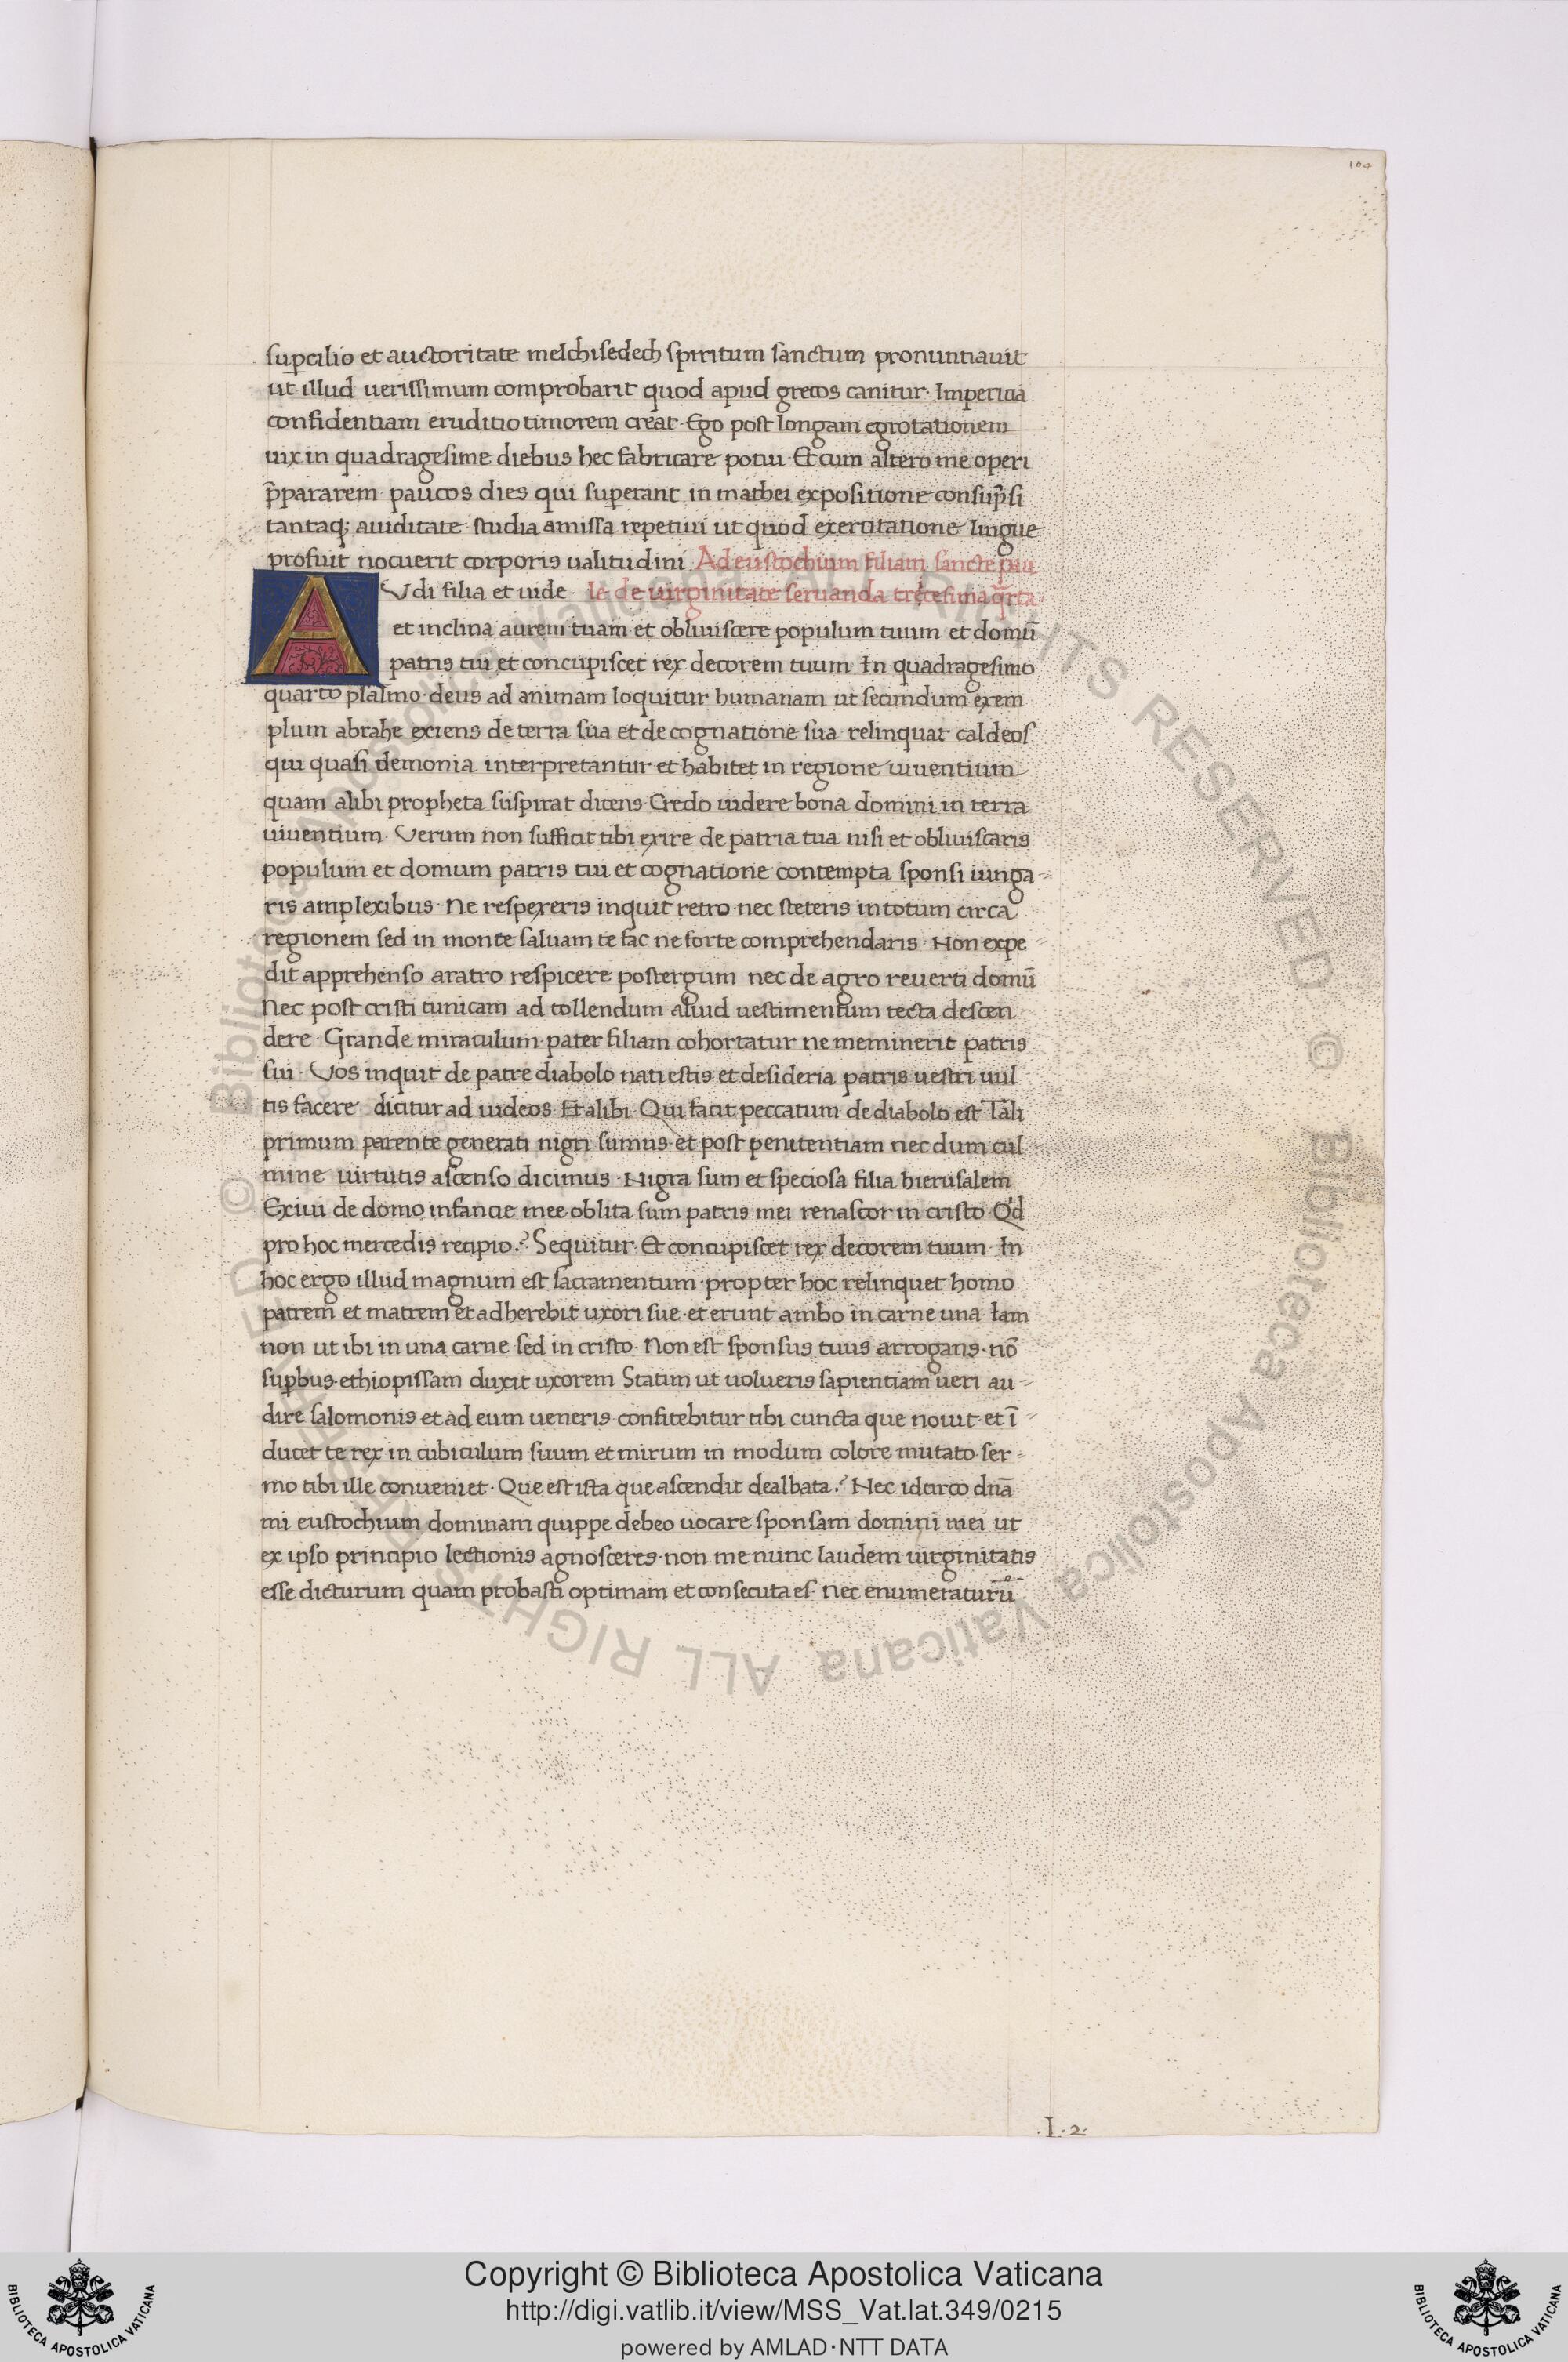 104
supcilio et auctoritate melchisedech spiritum sanctum pronuntiauit
ut illud uerissimum comprobarit quod apud grecos canitur· Imperitia
confidentiam eruditio timorem creat· Ego post longam egrotationem
uix in quadragesime diebus hec fabricare potui· Et cum altero me operi
p̄pararem paucos dies qui superant in mathei expositione consup̄si
tantaq; auiditate studia amissa repetiui ut quod exercitatione lingue
profuit nocuerit corporis ualitudini· Ad eustochium filiam sancte pau
AVdi filia et uide· le de uirginitate seruanda trecesima q̄rta·
et inclina aurem tuam et obliuiscere populum tuum et domū
patris tui et concupiscet rex decorem tuum· In quadragesimo
quarto psalmo· deus ad animam loquitur humanam ut secundum exem
plum abrahe exiens de terra sua et de cognatione sua relinquat caldeos
qui quasi demonia interpretantur et habitet in regione uiuentium
quam alibi propheta suspirat dicens· Credo uidere bona domini in terra
uiuentium· Verum non sufficit tibi exire de patria tua nisi et obliuiscaris
populum et domum patris tui et cognatione contempta sponsi iunga-
ris amplexibus· Ne respexeris inquit retro nec steteris in totum circa
regionem sed in monte saluam te fac ne forte comprehendaris· Non expe-
dit apprehenso aratro respicere postergum nec de agro reuerti domū
Nec post cristi tunicam ad tollendum aliud uestimentum tecta descen
dere· Grande miraculum· pater filiam cohortatur ne meminerit patris
sui· Vos inquit de patre diabolo nati estis et desideria patris uestri uul
tis facere dicitur ad iudeos· Et alibi· Qui facit peccatum de diabolo est· Tali
primum parente generati nigri sumus· et post penitentiam nec dum cul
mine uirtutis ascenso dicimus· Nigra sum et speciosa filia hierusalem
Exiui de domo infancie mee oblita sum patris mei renascor in cristo· Qd
pro hoc mercedis recipio? Sequitur· Et concupiscet rex decorem tuum· In
hoc ergo illud magnum est sacramentum· propter hoc relinquet homo
patrem et matrem et adherebit uxori sue· et erunt ambo in carne una· Iam
non ut ibi in una carne sed in cristo· Non est sponsus tuus arrogans· nō
supbus· ethiopissam duxit uxorem Statim ut uolueris sapientiam ueri au-
dire salomonis et ad eum ueneris· confitebitur tibi cuncta que nouit· et ī-
ducet te rex in cubiculum suum et mirum in modum colore mutato· ser-
mo tibi ille conueniet· Que est ista que ascendit dealbata? Nec idcirco dn̄a
mi eustochium dominam quippe debeo uocare sponsam domini mei ut
ex ipso principio lectionis agnosceres· non me nunc laudem uirginitatis
esse dicturum quam probasti optimam et consecuta es· Nec enumeraturū
·I·2·
© Biblioteca Apostolica Vaticana ALL RIGHTS RESERVED © Biblioteca Apostolica Vaticana ALL RIGHTS RESERVED
Copyright © Biblioteca Apostolica Vaticana
http://digi.vatlib.it/view/MSS_Vat.lat.349/0215
powered by AMLAD·NTT DATA
BIBLIOTECA APOSTOLICA VATICANA
BIBLIOTECA APOSTOLICA VATICANA